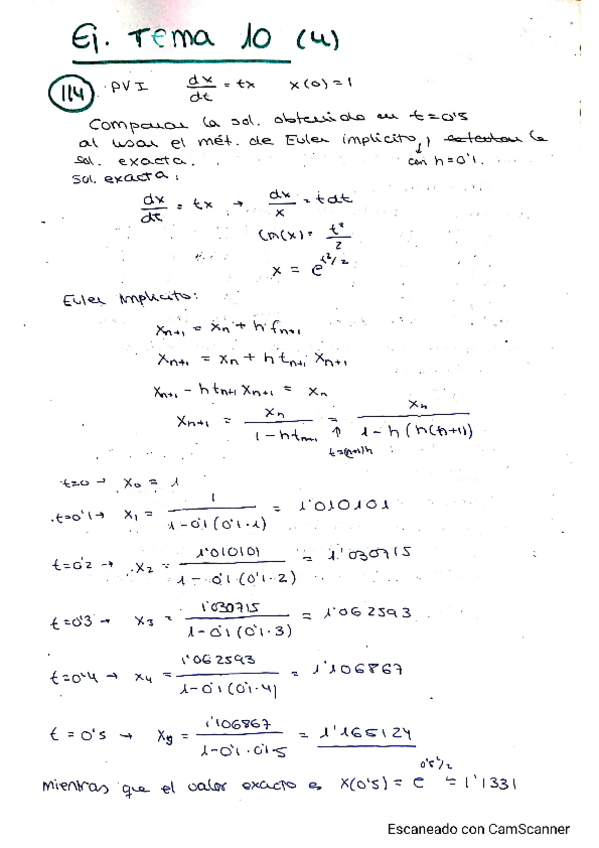 Ej. Tema 10 (4)
114 PVI dx/dt = tx x(0)=1
Comparar la sol. obtenida en t=0'5
al usar el mét. de Euler implícito, la
con h=0'1.
sol. exacta.
Sol. exacta:
dx/dt = tx → dx/x = t dt
ln(x) = t²/2
x = e^(t²/2)
Euler Implícito:
xn+1 = xn + h fn+1
xn+1 = xn + h tn+1 xn+1
xn+1 - h tn+1 xn+1 = xn
xn+1 = xn / (1-h tn+1) = xn / (1-h(h(n+1)))
↑
t=(n+1)h
t=0 → x0 = 1
t=0'1 → x1 = 1 / (1-0'1(0'1·1)) = 1'010101
t=0'2 → x2 = 1'010101 / (1-0'1(0'1·2)) = 1'030715
t=0'3 → x3 = 1'030715 / (1-0'1(0'1·3)) = 1'062593
t=0'4 → x4 = 1'062593 / (1-0'1(0'1·4)) = 1'106867
t=0'5 → x5 = 1'106867 / (1-0'1·0'1·5) = 1'165124
mientras que el valor exacto es x(0'5) = e^(0'5²/2) = 1'1331
Escaneado con CamScanner